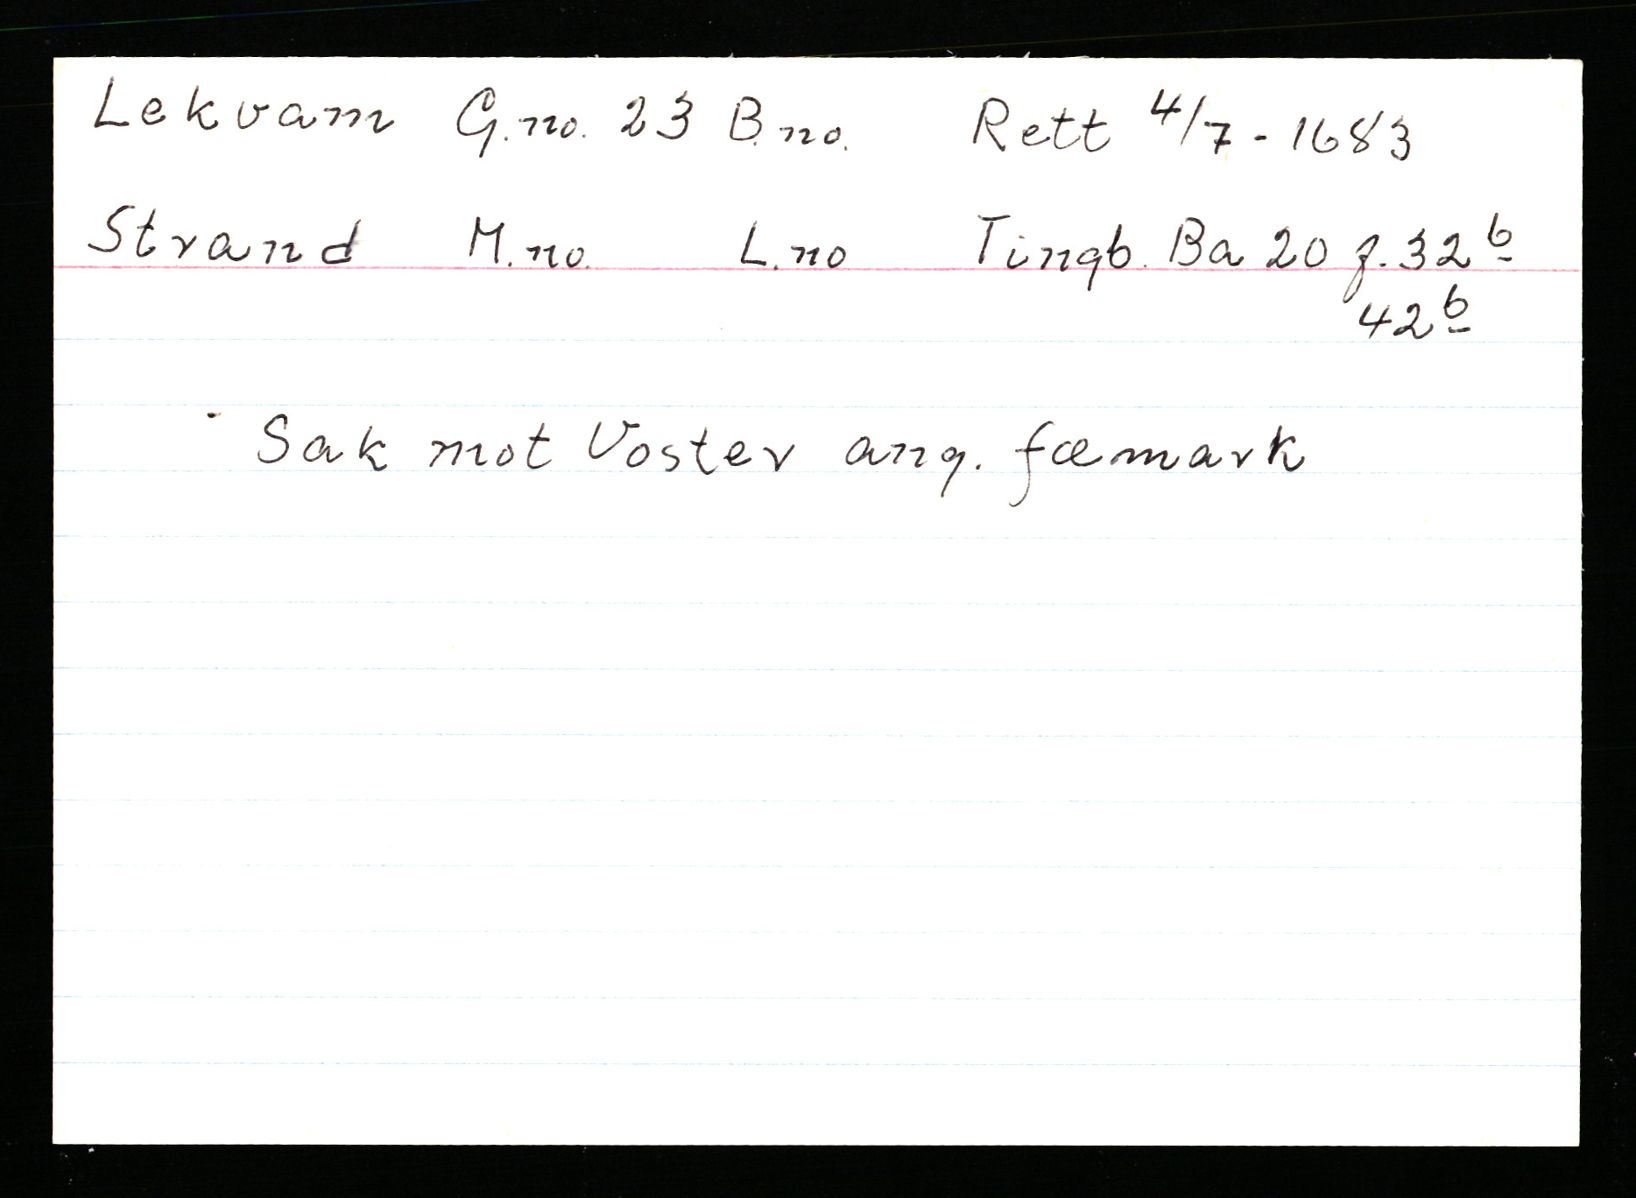 Lekvam G.no. 23 B.no. Rett 4/7 - 1683
Strand M.no. L.no Tingb. Ba 20 f. 32b
42b
Sak mot Voster ang. fæmark